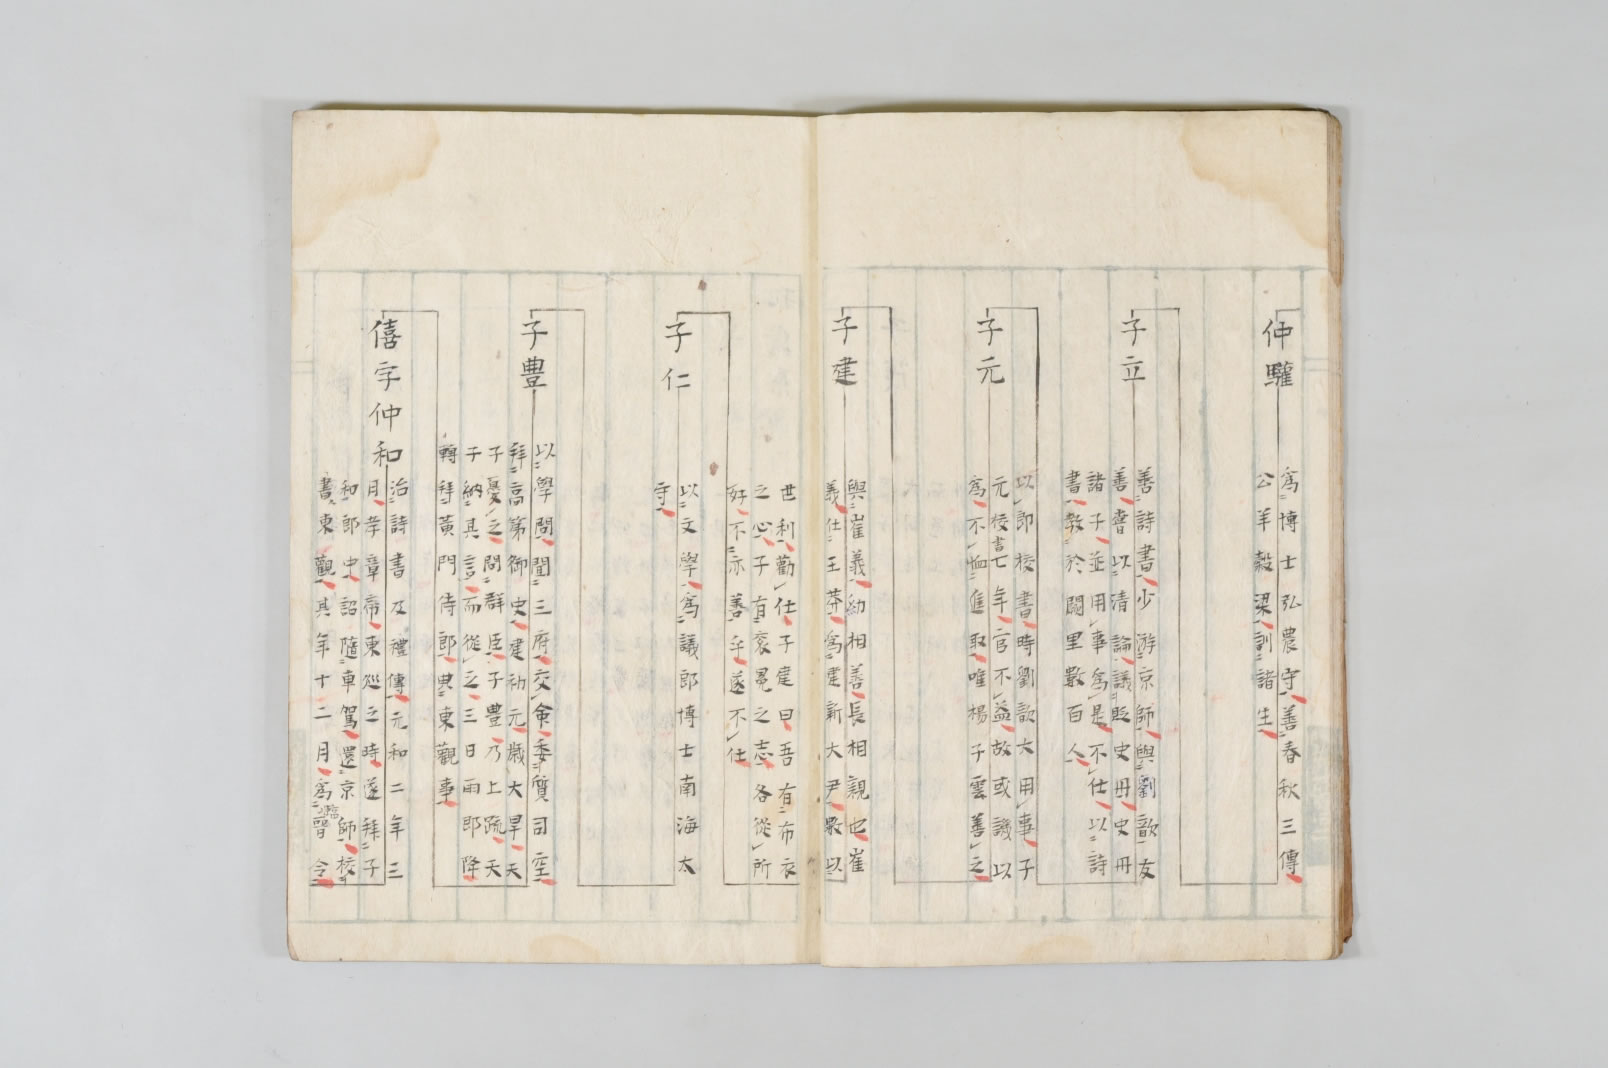 仲驩
爲博士弘農守善春秋三傳
公羊穀梁訓諸生
子立
善詩書少游京師與劉歆友
善嘗以清論議貶史丹史丹
諸子並用事爲是不仕以詩
書敎於闕里數百人
子元
以郎校書時劉歆大用事子
元校書七年官不益故或譏以
爲不恤進取唯楊子雲善之
子建
與崔義幼相善長相親也崔
義仕王莽爲建新大尹數以
世利勸仕子建曰吾有布衣
之心子有袞冕之志各從所
好不亦善乎遂不仕
子仁
以文學爲議郎博士南海太
守
子豊
以學問聞三府交命委質司空
拜高第御史建初元歳大旱天
子憂之問群臣子豊乃上疏天
子納其言而從之三日雨即降
轉拜黃門侍郎典東觀事
僖字仲和
治詩書及禮傳元和二年三
月孝章帝東巡之時遂拜子
和郎中詔隨車駕還京師校
書東觀其年十二月爲臨晉令